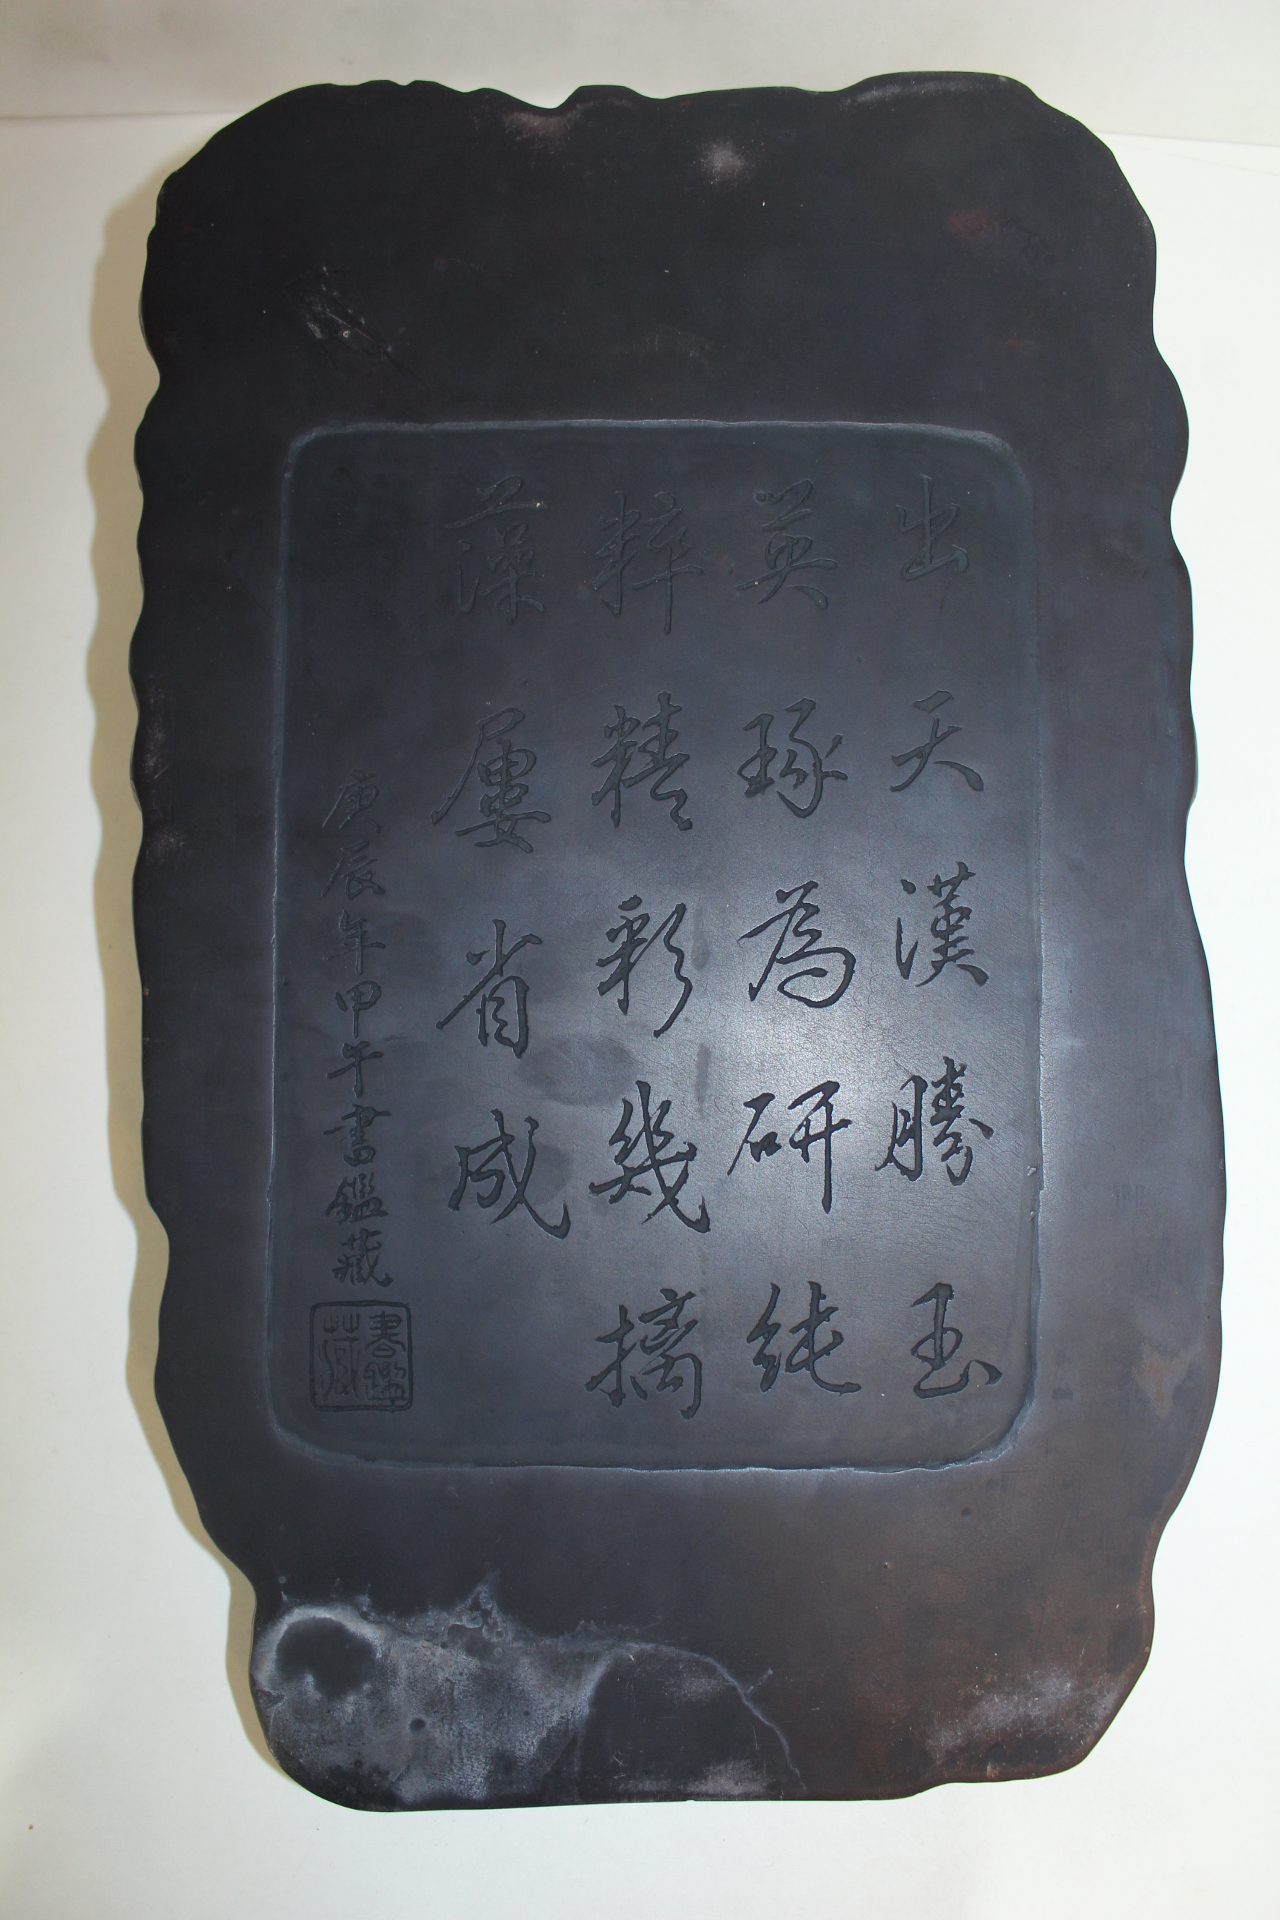 出天漢勝玉
英琢為研純
粹精彩幾摛
藻屢省成
庚辰年甲午書鑑藏
書鑑
藏